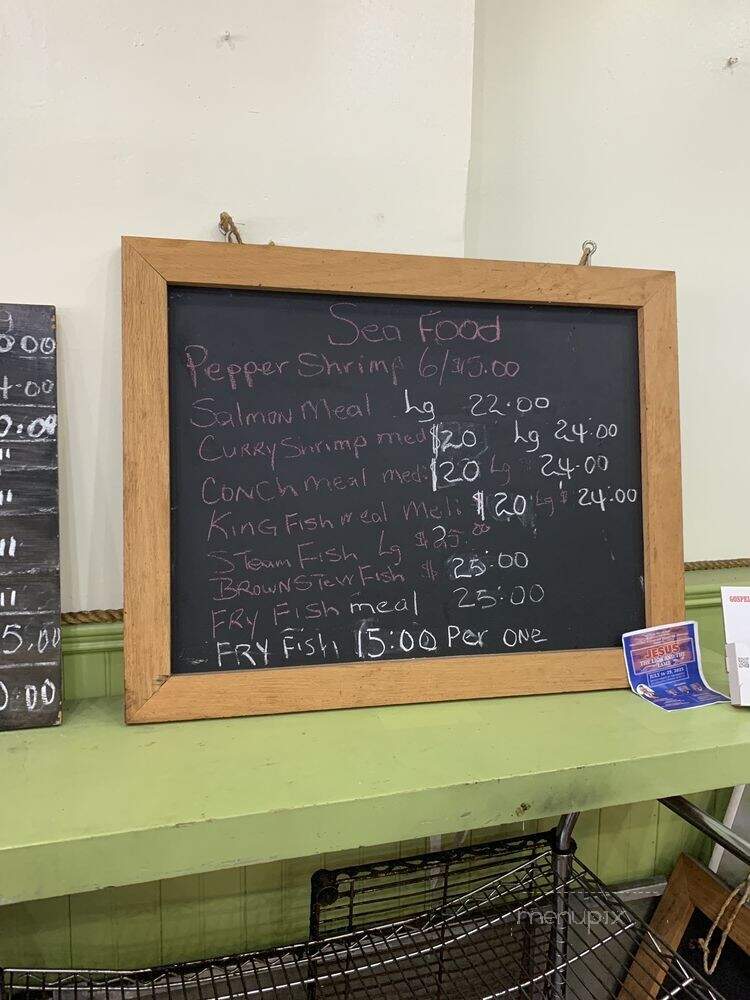 Sea Food
Pepper Shrimp 6/$15.00
Salmon Meal Lg 22.00
Curry Shrimp med $20 Lg 24:00
Conch meal med: $20 Lg 24.00
King Fish meal Med: $20 Lg $ 24:00
Steam Fish Lg $25.00
Brown Stew Fish $ 25:00
Fry Fish meal 25:00
Fry Fish 15:00 Per one
9
000
4.00
0.00
"
"
"
"
5.00
0:00
JESUS
THE LION AND THE
LAMB
GOSPEL
menupix